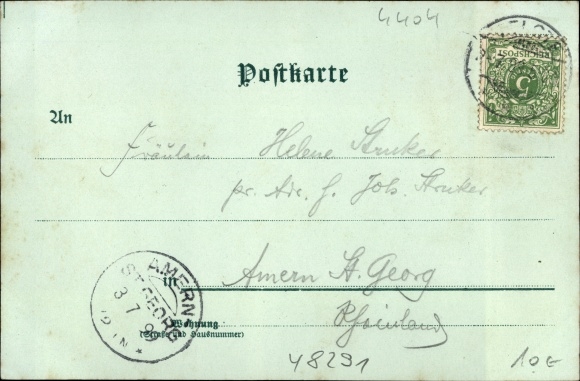 4404
Postkarte
REICHSPOST
5
An
Fräulein Helene Struker
pr. Adr. H. Joh. Struker
in Amern St. Georg
Rheinland
Wohnung
(Straße und Hausnummer)
AMERN
ST. GEORG
3 7
48291
10€